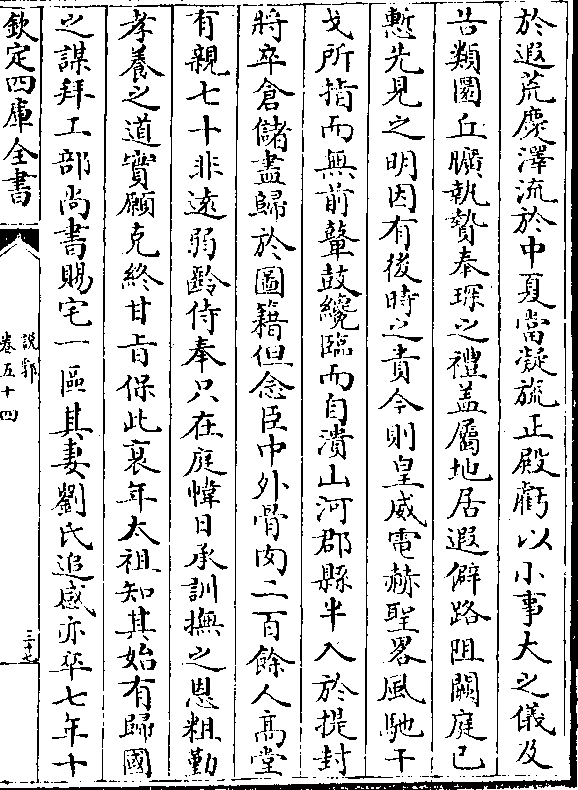 於遐荒麋澤流於中夏當凝旒正殿虧以小事大之儀及
告類圜丘曠執贄奉琛之禮盖屬地居遐僻路阻闕庭已
慙先見之明因有後時之責今則皇威電赫聖畧風馳干
戈所指而無前鼙鼓纔臨而自潰山河郡縣半入於提封
將卒倉儲盡歸於圖籍但念臣中外骨肉二百餘人高堂
有親七十非遠弱齡侍奉只在庭幃日承訓撫之恩粗勤
孝養之道實願克終甘旨保此衰年太祖知其始有歸國
之謀拜工部尚書賜宅一區其妻劉氏追感亦卒七年十
欽定四庫全書
說郛
卷五十四
三十七